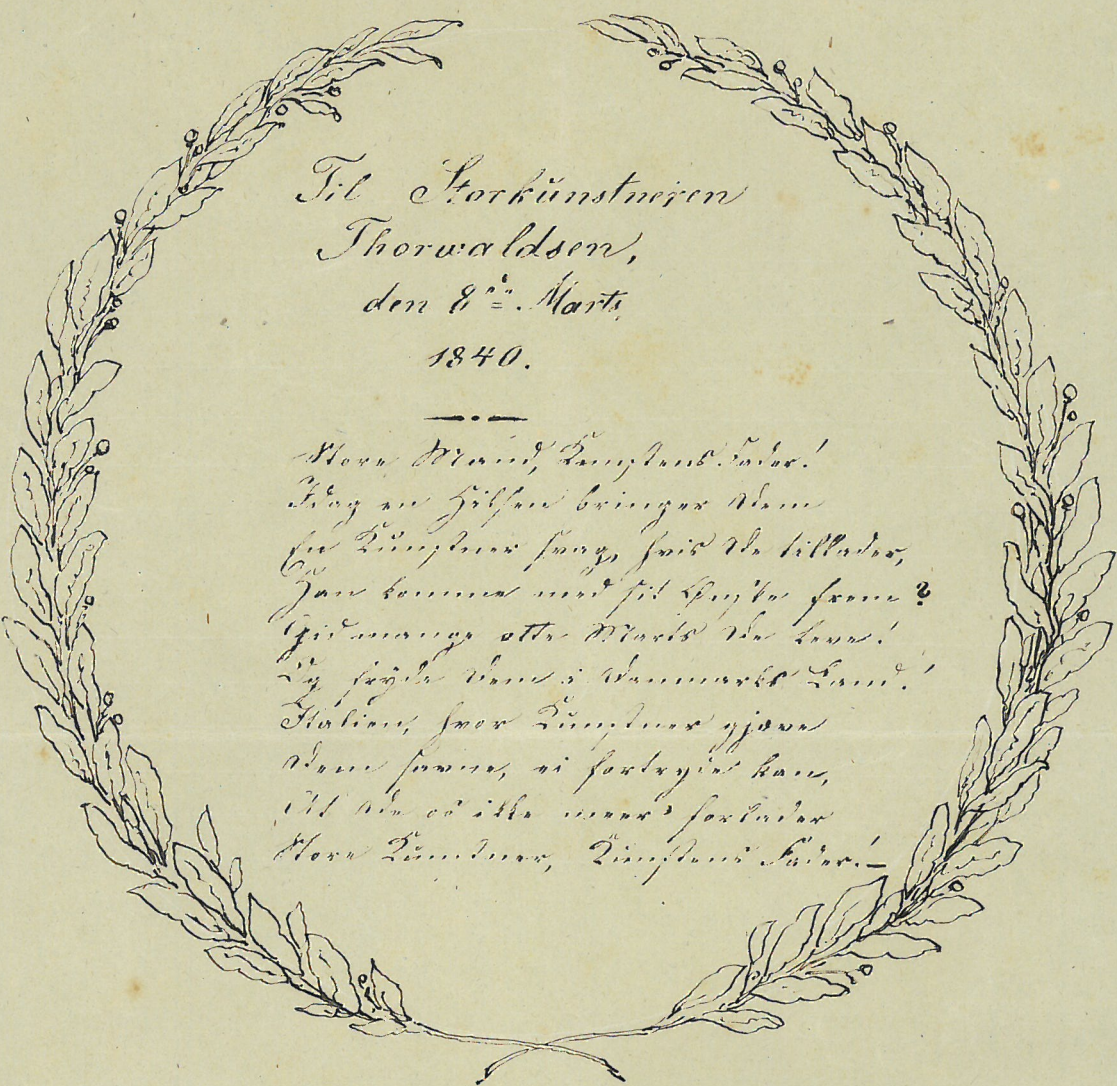 Til Storkunstneren
Thorwaldsen,
den 8de Marts
1840.
Store Mand, Kunstens Fader!
Idag en Hilsen bringer Dem
En Kunstner svag, hvis De tillader,
Han komme med sit Ønske frem?
Gid mange otte Marts De leve!
Og fryde Dem i Danmarks Land!
Italien, hvor Kunstner gjæve
Dem savne, ei fortryde kan,
At De os ikke meer forlader
Store Kunstner, Kunstens Fader! –